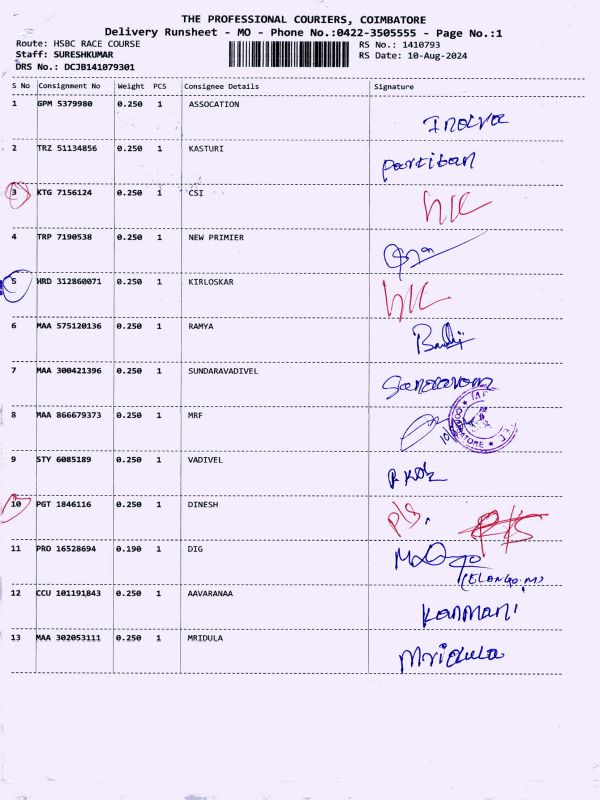 THE PROFESSIONAL COURIERS, COIMBATORE
Delivery Runsheet - MO - Phone No.:0422-3505555 - Page No.:1
Route: HSBC RACE COURSE RS No.: 1410793
Staff: SURESHKUMAR RS Date: 10-Aug-2024
DRS No.: DCJB141079301
S No Consignment No Weight PCS Consignee Details Signature
1 GPM 5379980 0.250 1 ASSOCATION
2 TRZ 51134856 0.250 1 KASTURI partiban
3 KTG 7156124 0.250 1 CSI
4 TRP 7190538 0.250 1 NEW PRIMIER
5 HRD 312860071 0.250 1 KIRLOSKAR
6 MAA 575120136 0.250 1 RAMYA
7 MAA 300421396 0.250 1 SUNDARAVADIVEL
8 MAA 866679373 0.250 1 MRF
9 STY 6085189 0.250 1 VADIVEL
10 PGT 1846116 0.250 1 DINESH
11 PRO 16528694 0.190 1 DIG
(ELANGO.M)
12 CCU 101191843 0.250 1 AAVARANAA kanmani
13 MAA 302053111 0.250 1 MRIDULA Mridula